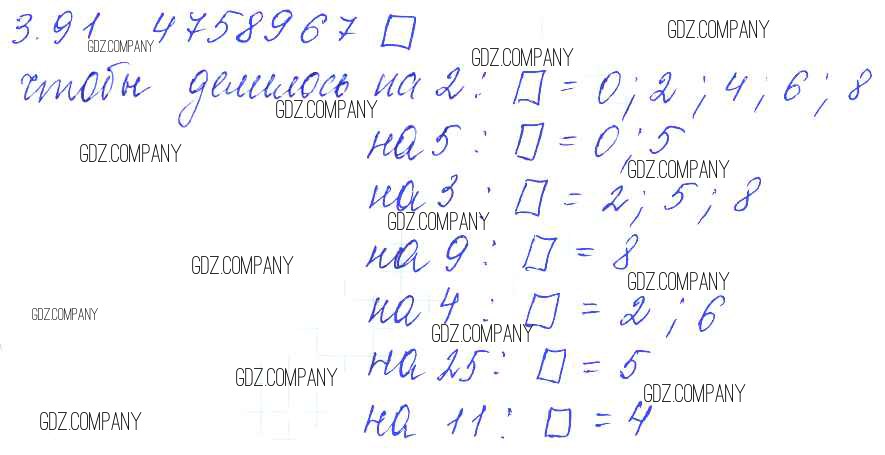 3.91 4758967 □
чтобы делилось на 2: □ = 0; 2; 4; 6; 8
на 5: □ = 0; 5
на 3: □ = 2; 5; 8
на 9: □ = 8
на 4: □ = 2; 6
на 25: □ = 5
на 11: □ = 4
GDZ.COMPANY
GDZ.COMPANY
GDZ.COMPANY
GDZ.COMPANY
GDZ.COMPANY
GDZ.COMPANY
GDZ.COMPANY
GDZ.COMPANY
GDZ.COMPANY
GDZ.COMPANY
GDZ.COMPANY
GDZ.COMPANY
GDZ.COMPANY
GDZ.COMPANY